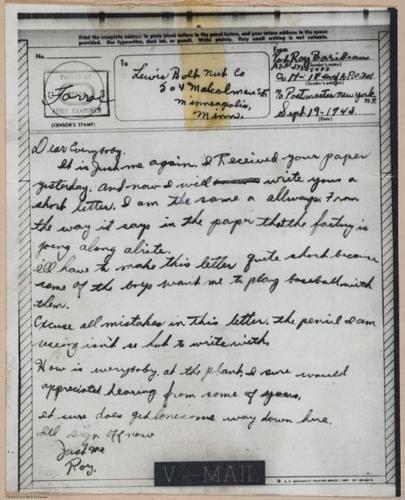 Print the complete address in plain block letters in the panel below, and your return address in the space
provided. Use typewriter, dark ink, or pencil. Write plainly. Very small writing is not suitable.
No.
To
Lewis Bolt Nut Co
504 Malcolm
Minneapolis,
Minn.
From
Pvt Roy
(Sender's name)
Co H-
(Sender's address)
% Postmaster New York,
N.Y.
Sept 19-1943
(Date)
PASSED BY
ARMY EXAMINER
(CENSOR'S STAMP)
Dear Everybody.
It is Just me again. I Received your paper
yesterday. And now I will write you a
short letter. I am the same a allways. From
the way it says in the paper that the factory is
going along alrite.
I'll have to make this letter quite short because
some of the boys want me to play baseball with
them.
Excuse all mistakes in this letter, the pencil I am
useing isn't so hot to write with.
How is everybody at the plant, I sure would
appreciated hearing from some of yours.
It sure does get lonesome way down here.
I'll sign off now
Just me
Roy.
V-MAIL